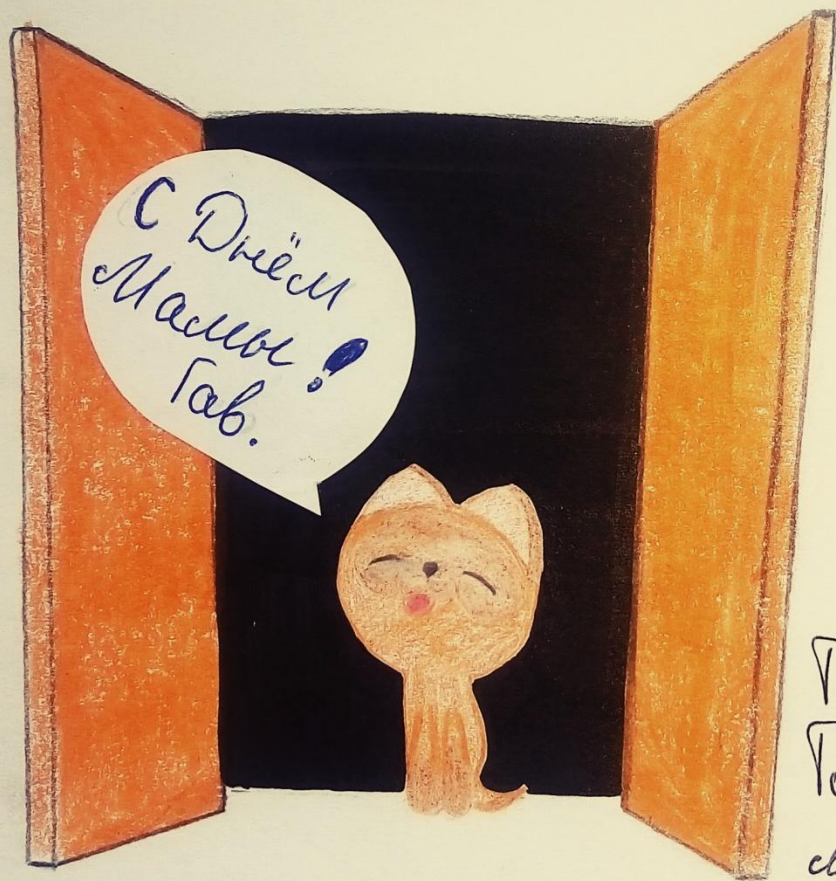 С Днём
Мамы!
Гав.